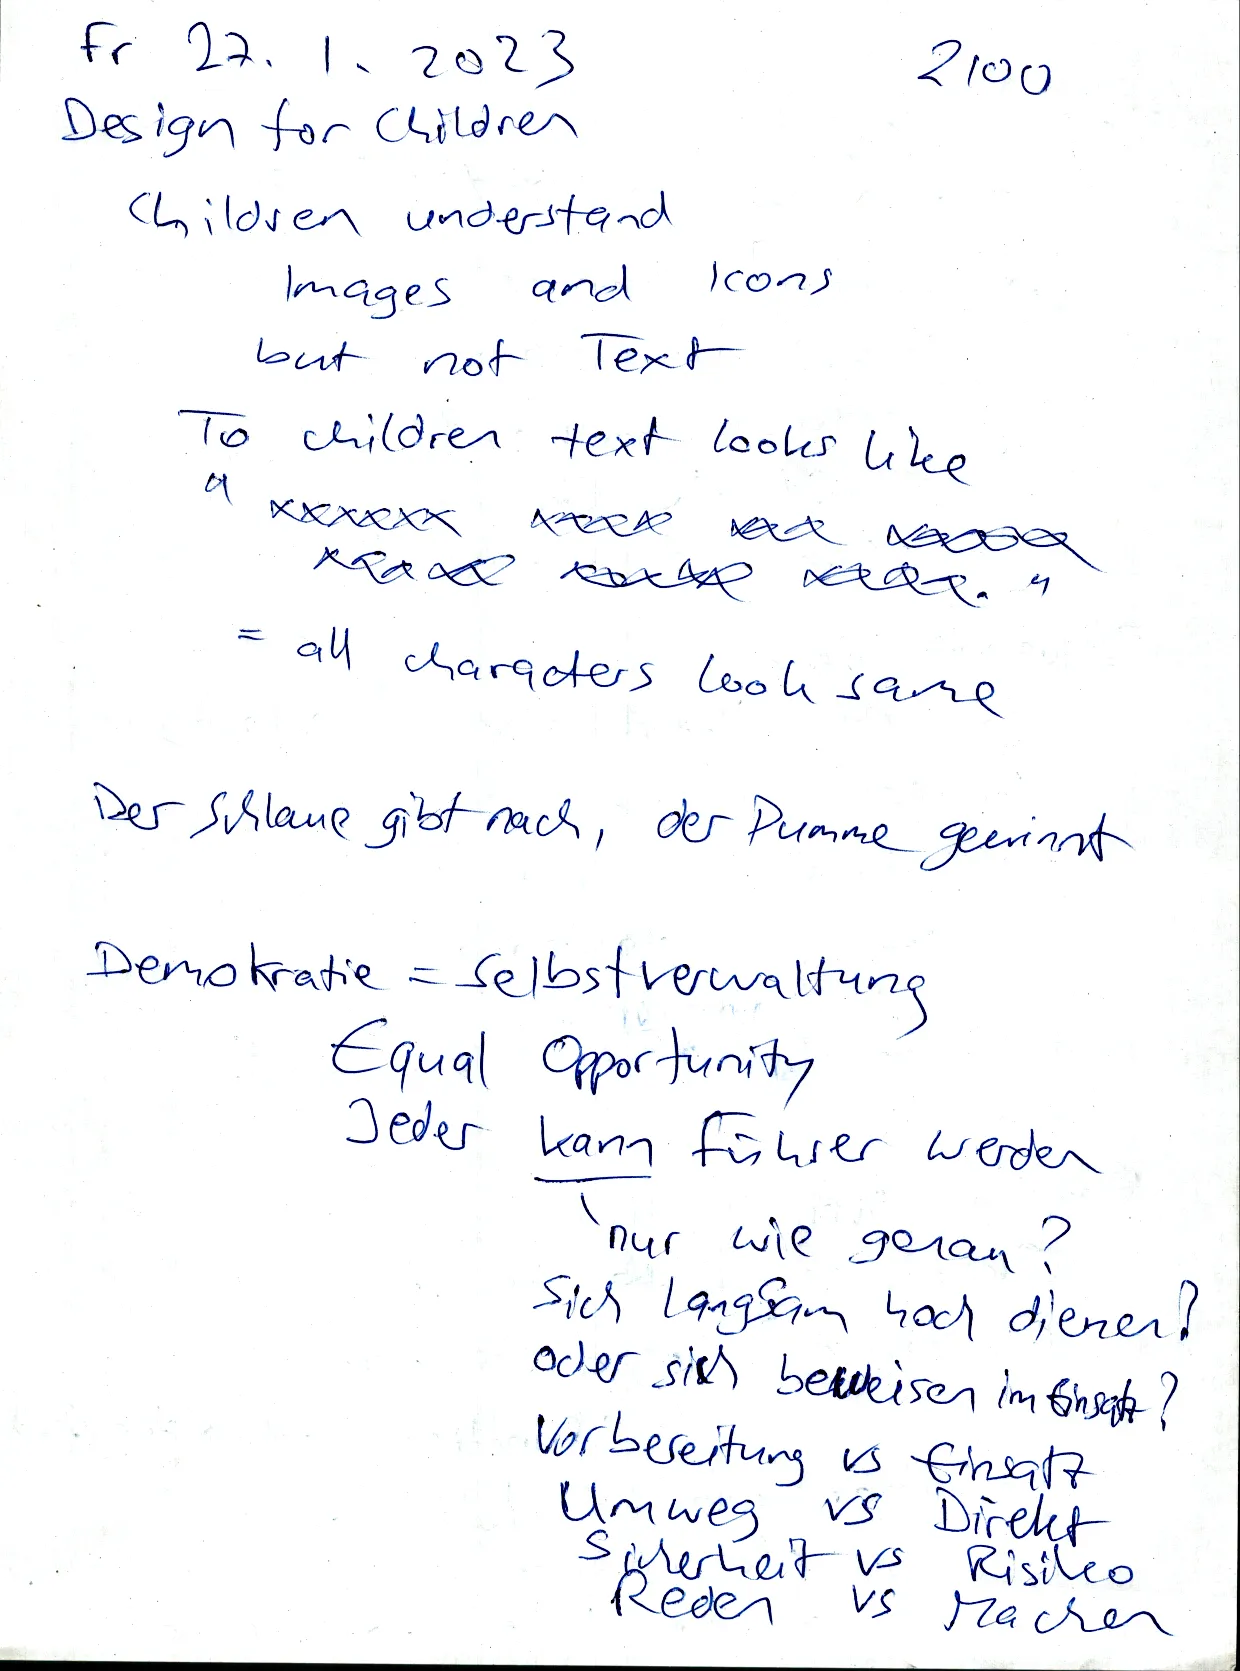 Fr 27. 1. 2023 2100
Design for Children
Children understand
Images and Icons
but not Text
To children text looks like
" xxxxxx xxxx xxx xxxxx
xxxxx xxxxx xxxx. "
= all characters look same
Der Schlaue gibt nach, der Dumme gewinnt
Demokratie = Selbstverwaltung
Equal Opportunity
Jeder kann Führer werden
nur wie genau?
Sich langsam hoch dienen?
oder sich beweisen im Einsatz?
Vorbereitung vs Einsatz
Umweg vs Direkt
Sicherheit vs Risiko
Reden vs Machen